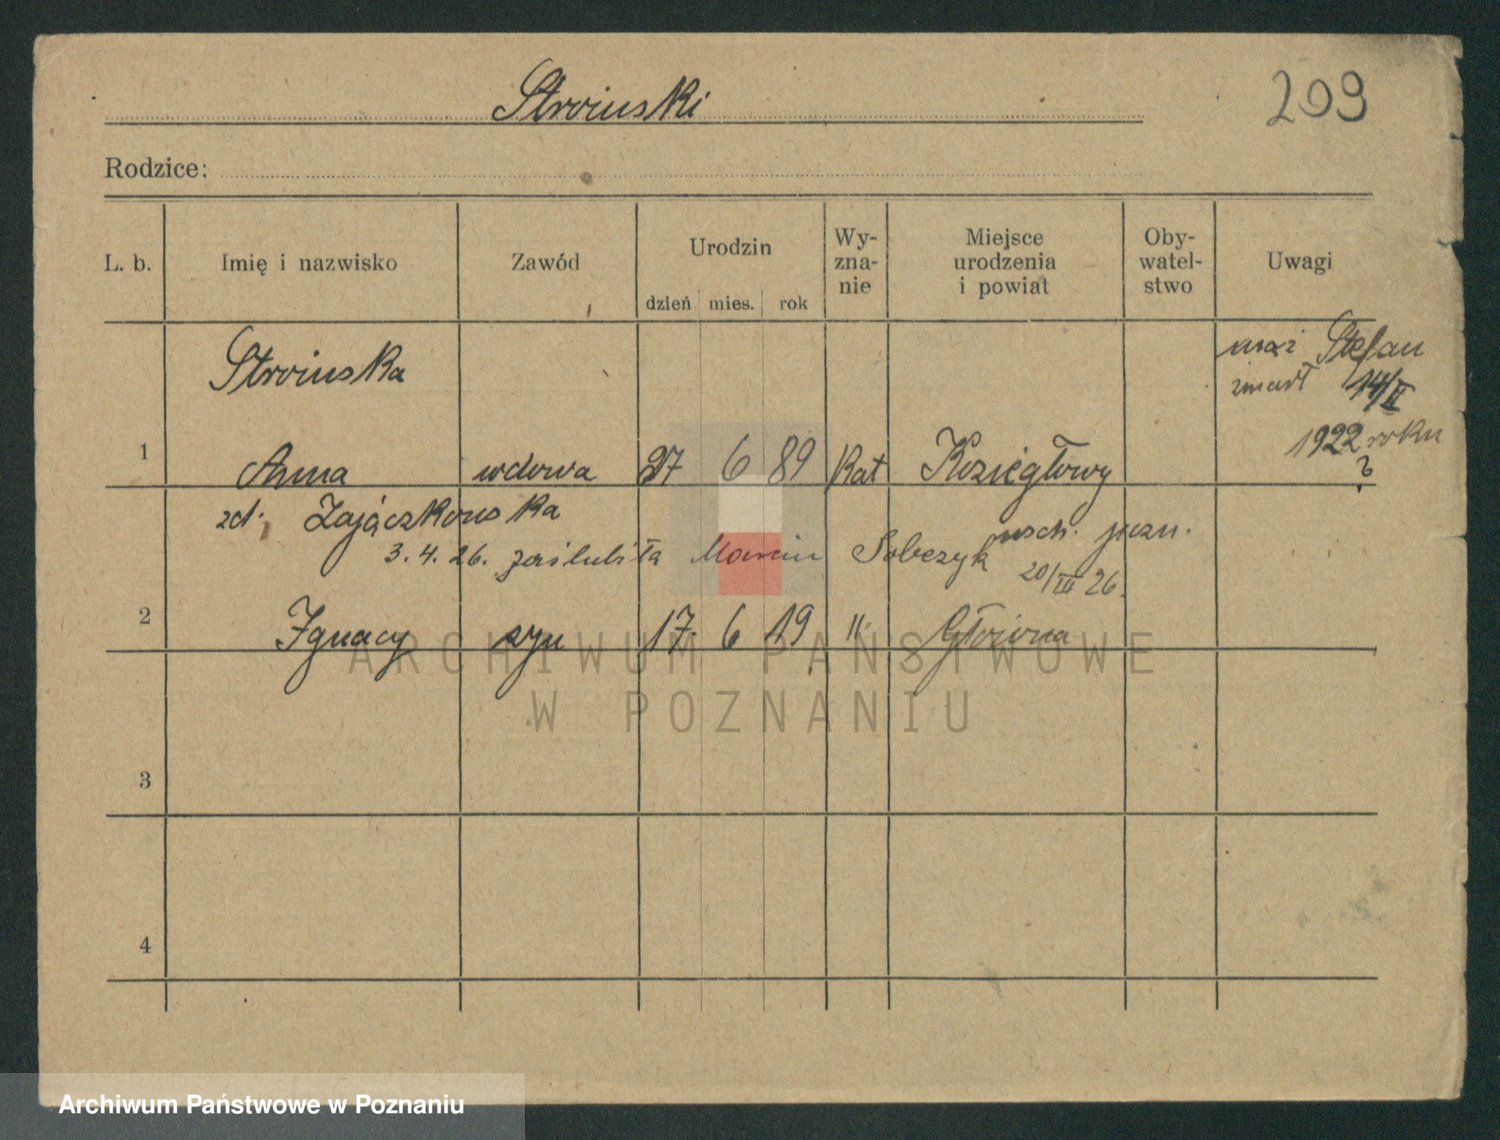 Stroinski
209
Rodzice:
L. b.
Imię i nazwisko
Zawód
Urodzin
dzień mies. rok
Wy-
zna-
nie
Miejsce
urodzenia
i powiat
Oby-
watel-
stwo
Uwagi
Stroinska
mąż Stefan
zmarł 14/II
1922 roku
?
1 Anna wdowa 27 6 89 Kat Koziegłowy
zd. Zajączkowska
wsch. pozn.
3. 4. 26. zaślubiła Marcin Sobczyk
20/III 26.
2 Ignacy syn 17. 6 19 II. Główna
ARCHIWUM PAŃSTWOWE
W POZNANIU
3
4
Archiwum Państwowe w Poznaniu